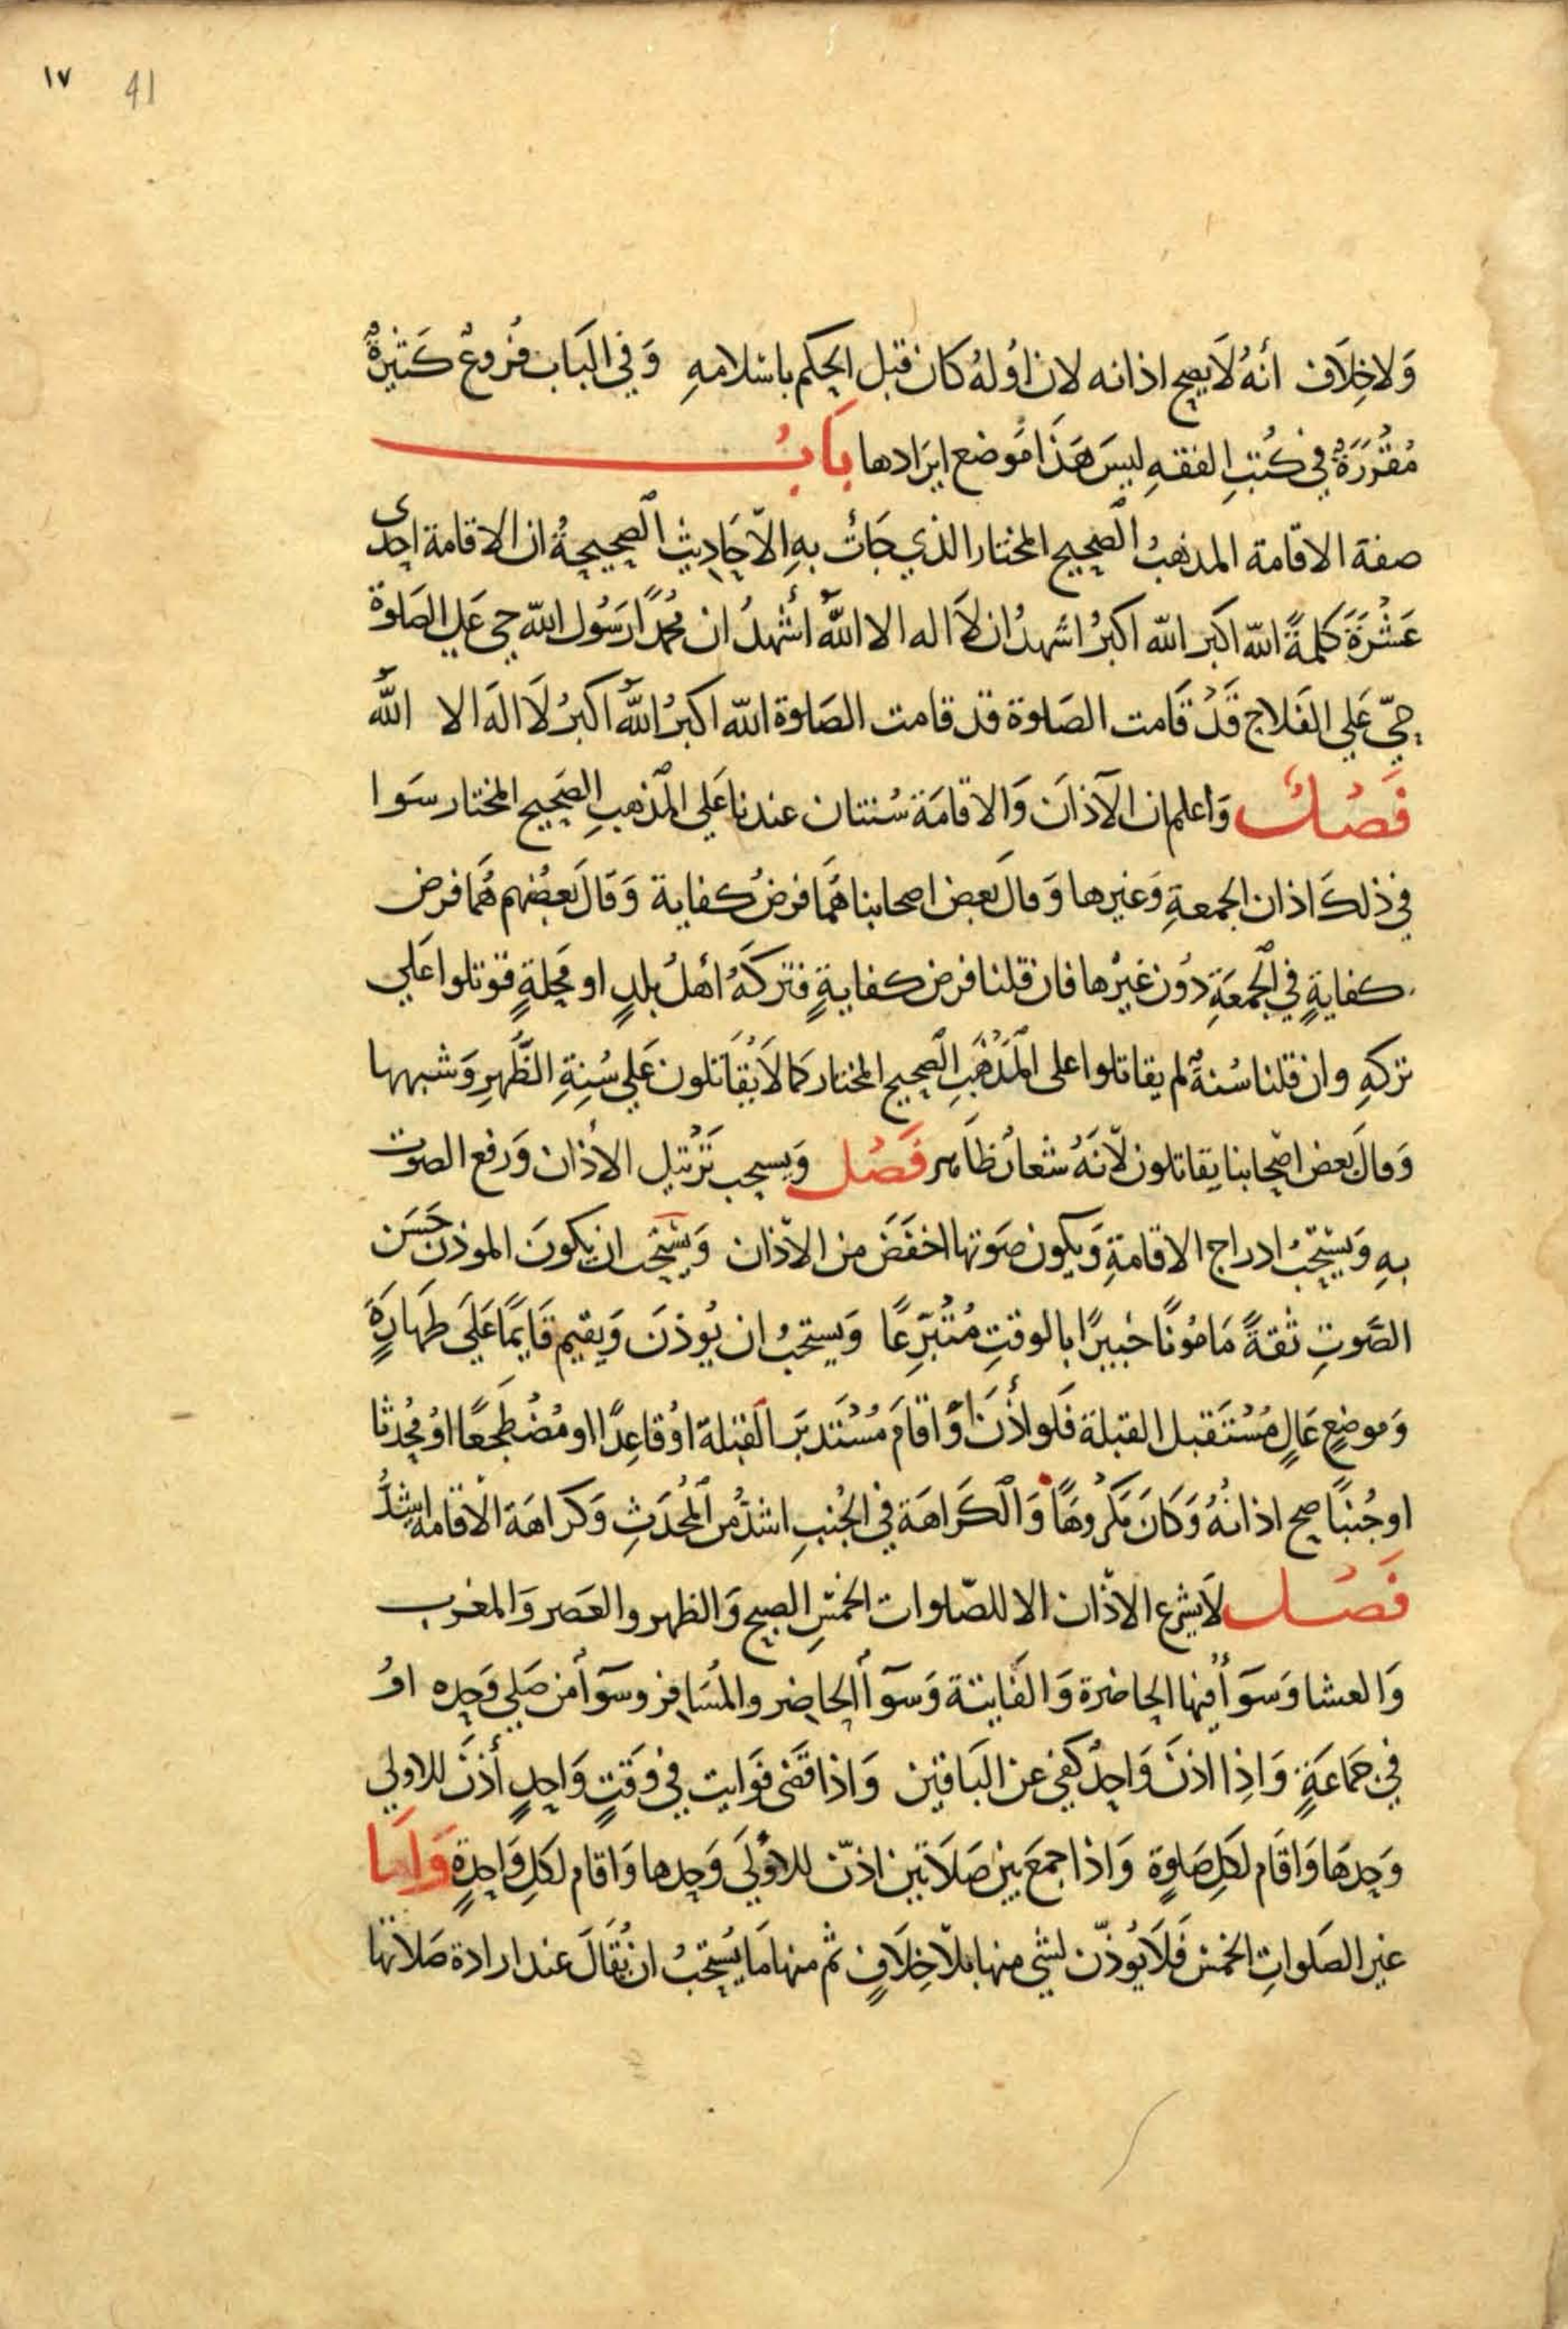 ١٧ 41
وَلاخِلَاف أنهُ لَا يصح اذانه لان اوُلهُ كان قبل الحكم باسْلامهِ وَفي البَاب فُروعٌ كَثيْرةٌ
مُقْرَرَةٌ في كُتبِ الفقهِ ليسَ هَذَا مَوضع ايرَادها بَابُ
صفة الاقامة المذهبُ الصحيح المختار الذي جَأتْ بهِ الاَحَادِيث الصحِيحةُ ان الاقامة احدى
عَشْرَةَ كلمةً الله اكبَر الله اكبرُ اشهدُ ان لَا اله الا اللهُ أشهدُ ان محُمدًا رَسُول الله حي عَلي الصَلوة
حيّ عَلي الفَلاح قَدْ قَامت الصَلوة قد قامت الصَلوة الله اكبرُ اللهُ اكبرُ لَا الهَ الا اللهُ
فَصْلٌ وَاعلم ان الآذانَ وَالاقامَة سُنتان عندنا عَلي المذهبِ الصَحيحِ المختار سَوا
في ذلكَ اذان الجمعةِ وَغيرها وَقالَ بَعض اصحابنا هُمَا فرضُ كفاية وَقَالَ بَعضهم هُمَا فرض
كفايةٍ في الجُمعَةِ دُون غيْرها فان قلنا فرض كفايةٍ فتركَهُ أهلُ بلدٍ او مَحِلةٍ قوتلوا عَلي
تركهِ وان قلنا سُنةٌ لم يقاتلوا على المَذْهَبِ الصحيحِ المختار كمَا لَا يُقَاتلون عَلي سُنةِ الظُهرِ وَشبهها
وَقالَ بَعض اصْحَابنا يقاتلون لاَنهُ شعارٌ ظَاهر فَصْل وَيسحب تَرْتيل الاذان وَرفع الصوت
بهِ وَيسْتحبُ ادراج الاقامةِ وَيكون صَوتها اخفَضَ من الاذان وَيسْتحب ان يكونَ الموذن حَسَن
الصَوتِ ثقةً مَامُونًا خبيرًا بالوقتِ مُتْبَرِعًا وَيستحبُ ان يُوذنَ وَيقيم قَايمًا عَلَي طهَارةٍ
وَموضعٍ عَالٍ مُسْتَقبل القبلة فَلو أذنَ اوْ اقامَ مُسْتَدبرَ القبلة اوْ قاعِدًا او مُضْطَجعًا اوْ مُحْدثا
او جُنبًا صح اذانهُ وَكَانَ مَكرُوهًا وَالكَراهَة في الجُنبِ اشدُ من المحُدَثِ وَكرَاهَة الاقامه اشدُّ
فَصْل لَا يشرع الاذان الا للصَلوات الخمسِ الصبح وَالظهر والعَصر وَالمغرب
وَالعشا وَسَوأ فيها الحاضرة وَالفَايتة وَسوآ الحاضر والمُسَافر وسوَآ من صَلي وَحده اوُ
في جَمَاعَةٍ وَاذِا اذنَ وَاحدٌ كفي عن البَاقين وَاذا قَضى فوَايت في وَقتٍ وَاحدٍ أذنَ للاولي
وَحدهَا وَاقَام لكلِ صَلوةٍ وَاذا جمعَ بين صَلَاتين اذنّ للاولَي وَحدها وَاقام لكلِ وَاحدةٍ وَامَا
غير الصَلواتِ الخمسْ فَلَا يُوذّن لشي منها بلاَ خِلَافٍ ثم منها مَا يُستحبُ ان يُقَالَ عند ارادة صَلاتها